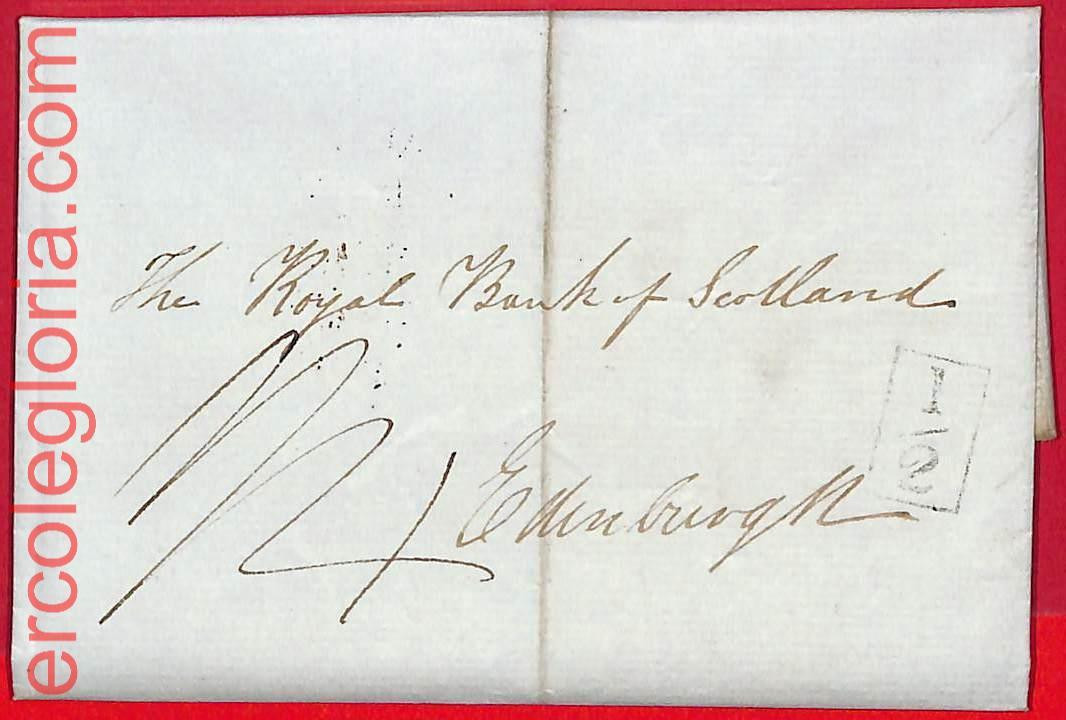 ercolegloria.com
The Royal Bank of Scotland
Edinburgh